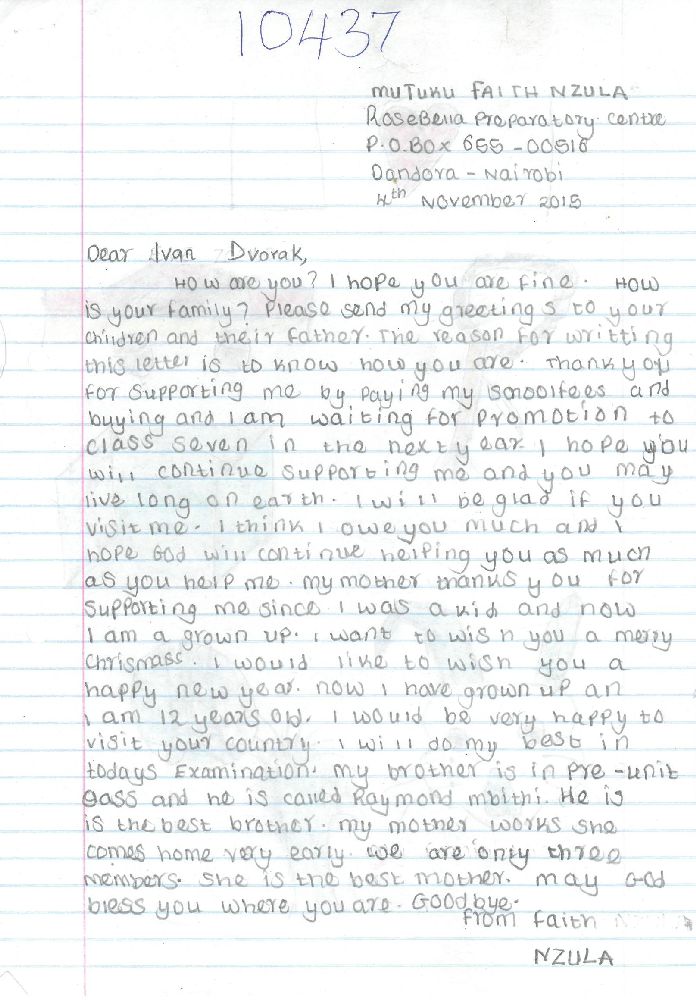 10437
MUTUKU FAITH NZULA
RoseBella Preparatory Centre
P.O.BOX 655 -00516
Dandora - Nairobi
4th November 2015
Dear Ivan Dvorak,
How are you? I hope you are fine. How
is your family? Please send my greetings to your
children and their father. The reason for writting
this letter is to know how you are. Thank you
for supporting me by paying my smoolfees and
buying and I am waiting for promotion to
class seven in the next year. I hope you
will continue supporting me and you may
live long on earth. I will be glad if you
visit me. I think I owe you much and I
hope God will continue helping you as much
as you help me. my mother thanks you for
supporting me since I was a kid and now
I am a grown up. I want to wish you a merry
Chrismass. I would like to wish you a
happy new year. now I have grown up an
I am 12 years old. I would be very happy to
visit your country. I will do my best in
todays Examination. my brother is in Pre-unit
Class and he is called Raymond mbithi. He is
is the best brother. my mother works she
comes home very early. we are only three
members. she is the best mother. may God
bless you where you are. Goodbye.
From faith
NZULA